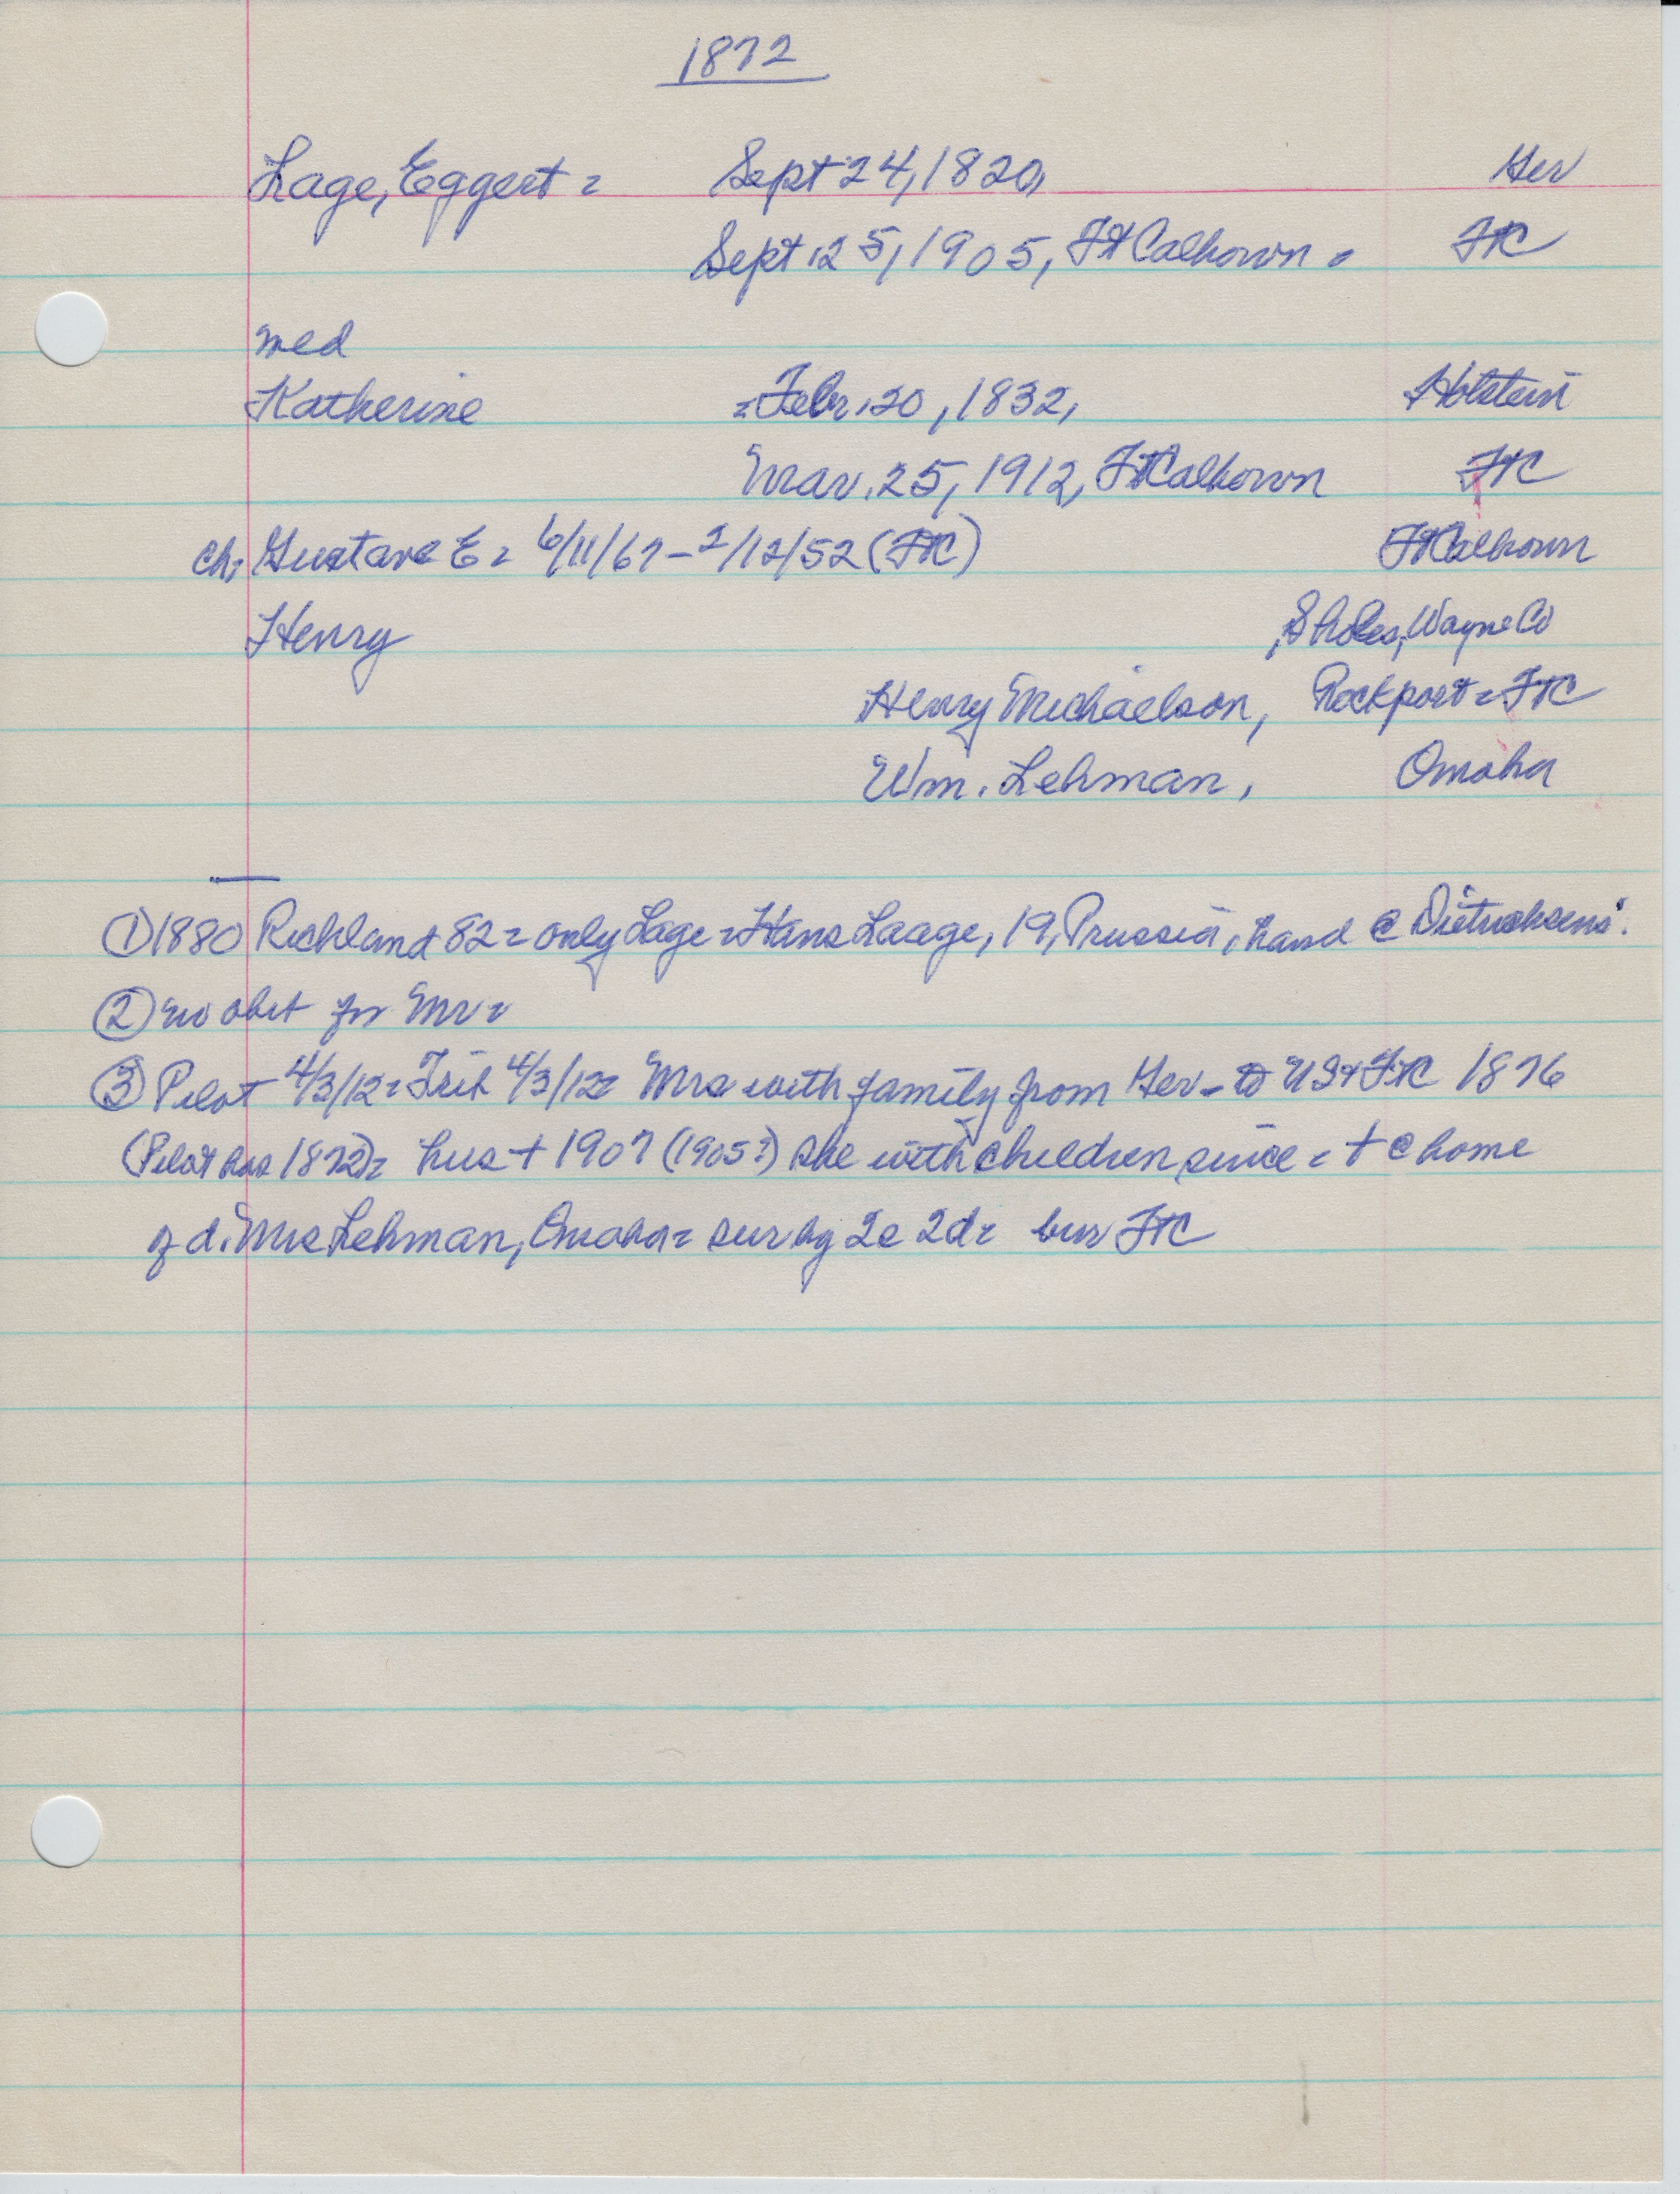 1872
Lage, Eggert = Sept 24, 1820, Ger
Sept 25, 1905, Ft Calhoun = FtC
med
Katherine = Febr. 20, 1832, Holstein
Mar. 25, 1912, Ft Calhoun FtC
ch: Gustave E = 6/11/67 - 2/12/52 (FtC) Ft Calhoun
Henry Sholes, Wayne Co
Henry Michaelson, Rockport = FtC
Wm. Lehman, Omaha
① 1880 Richland 82 = only Lage = Hans Laage, 19, Prussia, hand @ Dietricksens'.
② no obit for Mr =
③ Pilot 4/3/12 = Trib 4/3/12 = Mrs with family from Ger - to US & FtC 1876
(Pilot has 1872) = hus + 1907 (1905?) she with children since = + @ home
of d. Mrs Lehman, Omaha = sur by 2s 2d = bur FtC